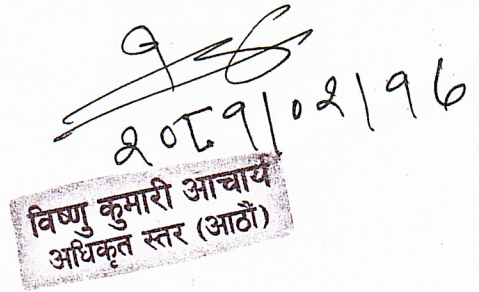 २०८१/०२/१६
विष्णु कुमारी आचार्य
अधिकृत स्तर (आठौं)